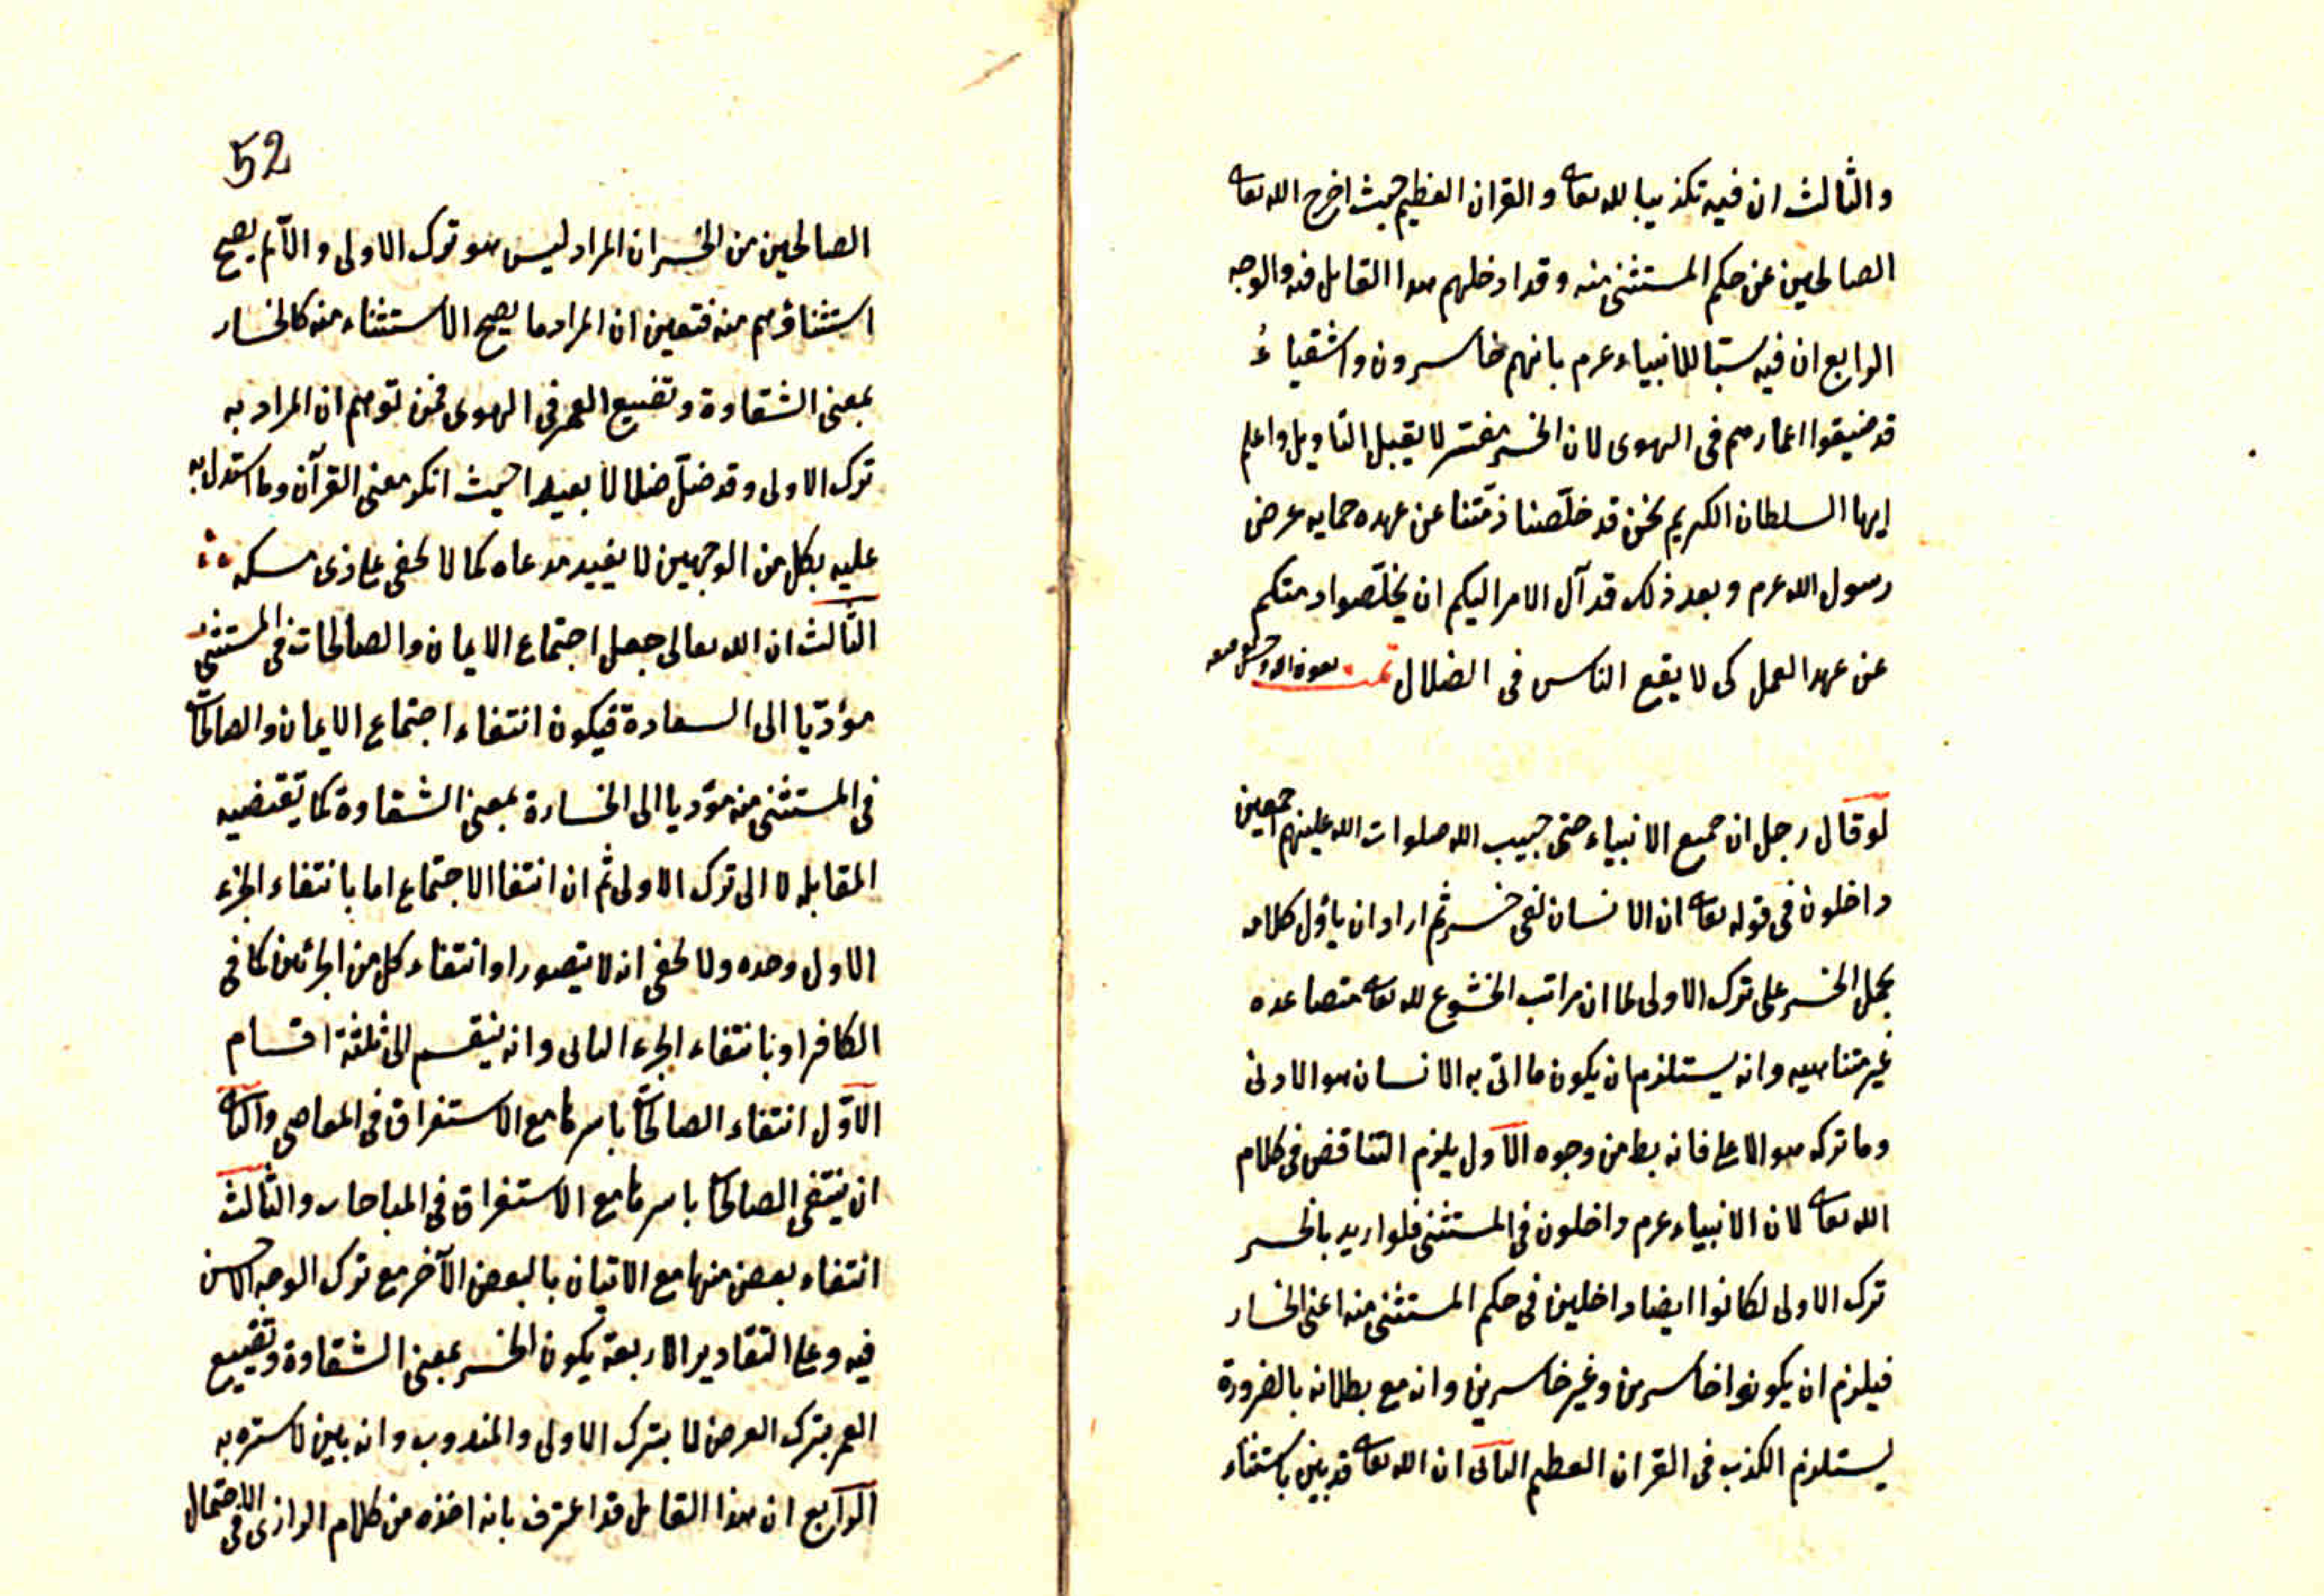 والثالث ان فيه تكذيبا لله تعا والقران العظيم حيث اخرج الله تعا
الصالحين عن حكم المستثنى منه وقد ادخلهم هذا القايل فيه والوجه
الرابع ان فيه سبّا للانبياء عرم بانهم خاسرون واشقياءُ
قد ضيقوا اعمارهم فى الهوى لان الخسر مفسّر لا يقبل التاويل واعلم
ايها السلطان الكريم نحن قد خلّصنا ذمّتنا عن عهده حمايه عرض
رسول الله عرم وبعد ذلك قد آل الامر اليكم ان يخلّصوا ذمتكم
عن عهد العمل كى لا يقع الناس فى الضلال تمت بعون الله وحسن توفيقه
لو قال رجل ان جميع الانبياء حتى حبيب الله صلوات الله عليهم اجمعين
داخلون فى قوله تعا ان الانسان لفى خسر ثم اراد ان يأوّل كلامه
بحمل الخسر على ترك الاولى لما ان مراتب الخشوع لله تعا متصاعده
غير متناهيه وانه يستلزم ان يكون ما اتى به الانسان هو الادنى
وما تركه هو الاعلى فانه بط من وجوه الاول يلزم التناقض فى كلام
الله تعا لان الانبياء عرم داخلون فى المستثنى فلو اريد بالخسر
ترك الاولى لكانوا ايضا داخلين فى حكم المستثنى منه اعنى الخسار
فيلزم ان يكونوا خاسرين وغير خاسرين وانه مع بطلانه بالضرورة
يستلزم الكذب فى القران العظيم الثانى ان الله تعا قد بين باستثناء
52
الصالحين من الخسر ان المراد ليس هو ترك الاولى والا لم يصح
استثناؤهم منه فتعين ان المراد ما يصح الاستثناء منه كالخسار
بمعنى الشقاوة وتضييع العمر فى الهوى فمن توهم ان المراد به
ترك الاولى وقد ضلّ ضلالا بعيدا حيث انكر معنى القرآن وما استدل به
عليه بكل من الوجهين لا يفيد مدعاه كما لا يخفى على ذى مسكه
الثالث ان الله تعالى جعل اجتماع الايمان والصالحات فى المستثنى
مؤدّيا الى السعادة فيكون انتفاء اجتماع الايمان والصالحات
فى المستثنى منه مؤديا الى الخسارة بمعنى الشقاوة كما يقتضيه
المقابله لا الى ترك الاولى ثم ان انتفا الاجتماع اما بانتفاء الجزء
الاول وحده ولا يخفى انه لا يتصور او انتفاء كل من الجزئين كما فى
الكافر او بانتفاء الجزء الثانى وانه ينقسم الى ثلثة اقسام
الاوّل انتفاء الصالحات باسرها مع الاستغراق فى المعاصى والثانى
ان ينتفى الصالحات باسرها مع الاستغراق فى المباحات والثالث
انتفاء بعض منها مع الاتيان بالبعض الآخر مع ترك الوجه الاحسن
فيه وعلى التقادير الاربعة يكون الخسر بمعنى الشقاوة وتضييع
العمر بترك الفرض لا بترك الاولى والمندوب وانه بين لا ستره به
الرابع ان هذا القايل قد اعترف بانه اخذه من كلام الرازى فى الاحتمال